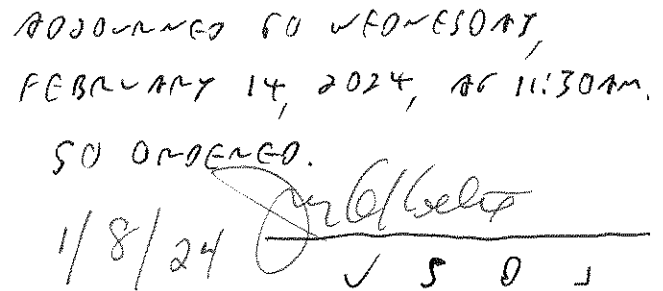 ADJOURNED TO WEDNESDAY,
FEBRUARY 14, 2024, AT 11:30AM.
SO ORDERED.
1/8/24
USDJ